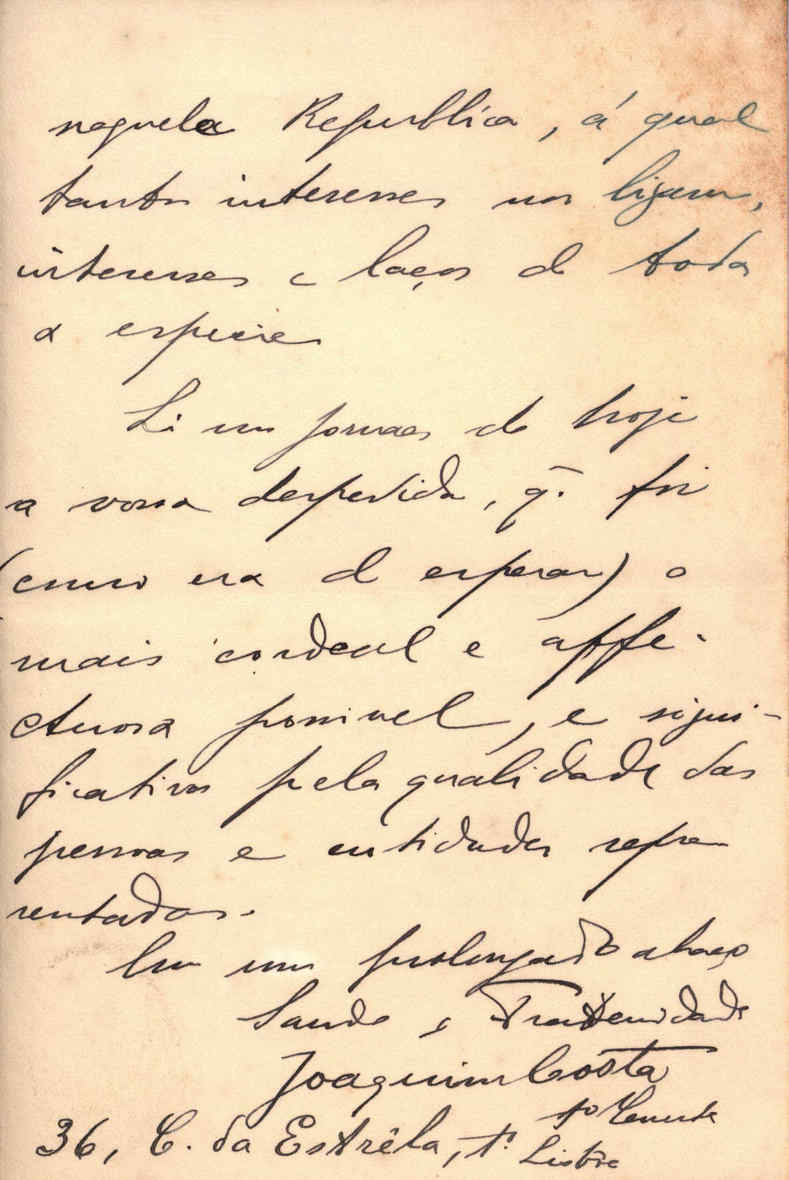 naquela Republica, á qual
tantos interesses nos ligam,
interesses e laços de toda
a especie
Li nos jornaes de hoje
a vossa despedida, q. foi
(como era de esperar) o
mais cordeal e affe-
ctuosa possivel, e signi-
ficativa pela qualidade das
pessoas e entidades repre
sentadas.
Com um prolongado abraço
Saude e Fraternidade
Joaquim Costa
Tenente
36, C. da Estrêla, Lisboa